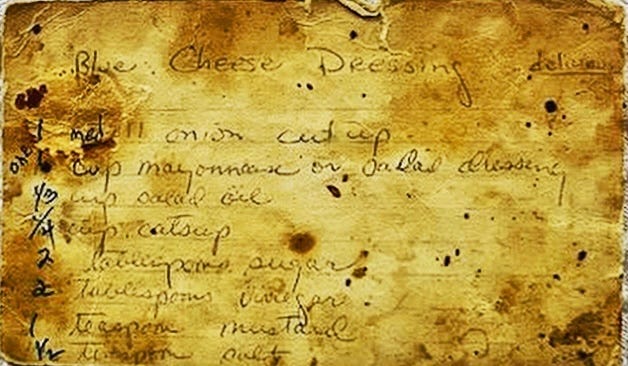 Blue Cheese Dressing
1 med onion cut up
one cup mayonnease or salad dressing
1/3 cup salad oil
1/4 cup catsup
2 tablespoons sugar
2 tablespoons vinegar
1 teaspoon mustard
1/2 teaspoon salt